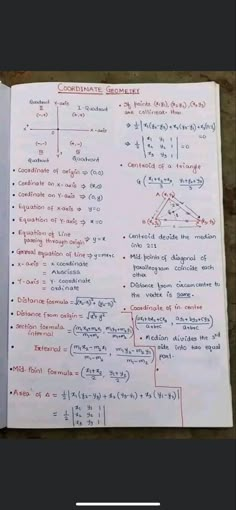 COORDINATE GEOMETRY
Quadrant Y-axis I-Quadrant
II
(-,+) (+,+)
X-axis
(-,-) (+,-)
III IV
Quadrant Quadrant
• Coordinate of origin ⇒ (0,0)
• Cordinate on x-axis ⇒ (x,0)
• Cordinate on Y-axis ⇒ (0,y)
• Equation of x-axis ⇒ y=0
• Equation of Y-axis ⇒ x=0
• Equation of Line
passing through origin ⇒ y=x
• General equation of line ⇒ y=mx+c
• X-axis = x coordinate
= Abscissa
• Y-axis = Y-coordinate
= ordinate
• Distance formula =
• Distance from origin = √x²+y²
• Section formula
internal =
External =
• Mid-Point formula = (x₁+x₂/2, y₁+y₂/2)
• Area of Δ = 1/2 |x₁(y₂-y₃)+x₂(y₃-y₁)+x₃(y₁-y₂)|
= 1/2 |x₁ y₁ 1
x₂ y₂ 1
x₃ y₃ 1|
• If points (x₁,y₁), (x₂,y₂), (x₃,y₃)
are collinear then
=0
x₁ y₁ 1
x₂ y₂ 1 =0
x₃ y₃ 1
• Centroid of a triangle
G
A (x₁,y₁)
• Centroid decide the median
into 2:1
• Mid points of diagonal of
parallelogram coincide each
other
• Distance from circumcentre to
the vertex is same.
• Coordinate of in centre
(ax₁+bx₂+cx₃/a+b+c, ay₁+by₂+cy₃/a+b+c)
• Median divides the 3rd
side into two equal
part.